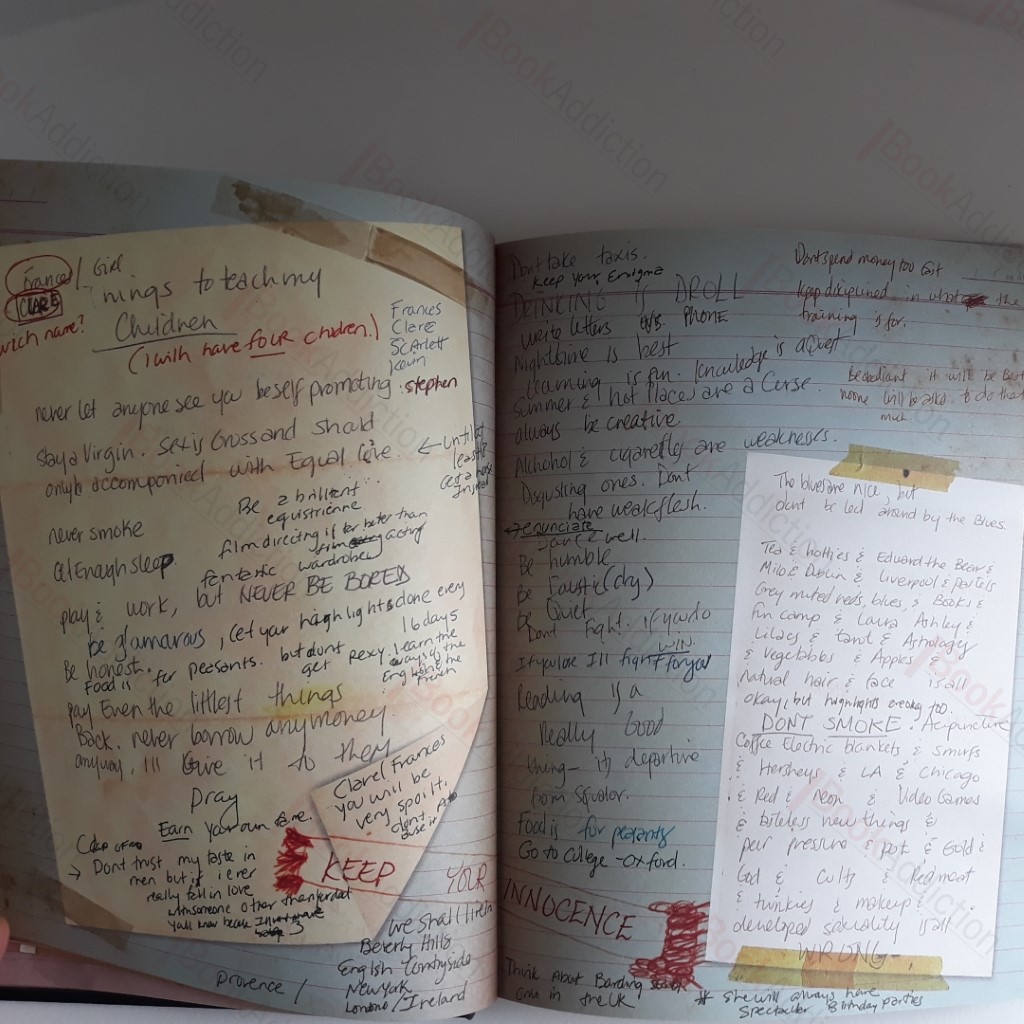 Frances / Girl
CLARE
wich name?
Things to teach my
Children
(I will have FOUR chidren.)
Frances
Clare
Scarlett
Kevin
stephen
never let anyone see you be self promoting.
stay a Virgin. Sex is Gross and should
only be accomponied with Equal love. ←
Be a brilliant
equistrienne
never smoke
film directing is far better than
acting
Get Enough sleep
fantastic wardrobe
play & work, but NEVER BE BORED
be glamarous, Get your highlights done every
16 days
Be honest.
Food is for peasants. but dont
get rexy. learn the
ways of the
English & the
French
pay Even the littlest things
Back. never borrow any money.
anyway, I'll Give it to them
Pray
Earn your own fame.
→ Dont trust my taste in
men but if i ever
really fell in love
with someone other than
you'll know because
Clare/Frances
you will be
very spoilt.
dont
abuse it
KEEP YOUR
we shall live in
Beverly Hills
English Countryside
New York
London / Ireland
provence /
Dont take taxis.
Keep your Enigma
DRINKING IS DROLL
write letters PHONE
Nightime is best
learning is fun. Knowledge is a Quest
Summer & Hot Places are a Curse.
always be creative
Alchohol & cigarettes are weaknesses.
Disgusting ones. Dont
have weak flesh.
→ enunciate
dance well.
Be humble
Be Faustic (dry)
Be Quiet
Dont fight. if you do
WIN.
If you lose I'll fight for you
Reading is a
Really Good
thing - its
from Squalor.
Food is for peasants
Go to College - Oxford.
INNOCENCE
Think About Boarding
one in the UK
Dont spend money too fast
Keep disciplined in what the
training is for.
Be obediant it will be Best
noone will be asked to do that
much
The blues are nice, but
dont be led around by the Blues.
Tea & hotties & Edward the Bear &
Milo & Dublin & Liverpool & pastels
Grey muted reds, blues, & Books &
fun camp & Laura Ashley &
Lilacs & tarot & Astrology
& Vegetables & Apples &
Natural hair & face is all
okay, but highlights are okay too.
DONT SMOKE. Acupuncture
Coffee Electric blankets & Smurfs
& Hersheys & LA & Chicago
& Red & Neon & Video Games
& tasteless new things &
peer pressure & pot & Gold &
God & Cults & Red meat
& twinkies & makeup &
developed sexuality is all
WRONG-.
* she will always have
Spectacular Birthday parties
BookAddiction